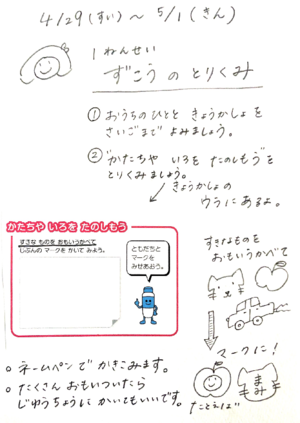 4/29(すい)～5/1(きん)
1ねんせい
ずこう の とりくみ
① おうちのひとと きょうかしょを
さいごまで よみましょう。
② "かたちや いろを たのしもう"を
とりくみましょう。
きょうかしょの
ウラにあるよ。
かたちや いろを たのしもう
すきな ものを おもいうかべて
じぶんの マークを かいて みよう。
ともだちと
マークを
みせあおう。
すきなものを
おもいうかべて
マークに!
○ ネームペンで かきこみます。
○ たくさん おもいついたら
じゆうちょうに かいてもいいです。
たとえば
まみ